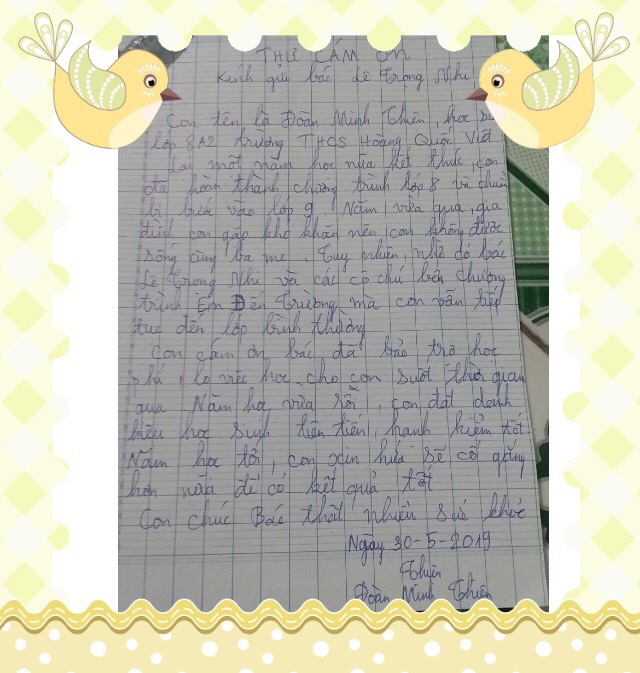 THƯ CẢM ƠN
Kính gửi bác Lê Trọng Nhi
Con tên là Đoàn Minh Thiên, học sinh
lớp 8A2 trường THCS Hoàng Quốc Việt
Lại một năm học nữa kết thúc, con
đã hoàn thành chương trình lớp 8 và chuẩn
bị bước vào lớp 9. Năm vừa qua, gia
đình con gặp khó khăn nên con không được
sống cùng ba mẹ. Tuy nhiên, nhờ có bác
Lê Trọng Nhi và các cô chú bên chương
trình Em Đến Trường mà con vẫn tiếp
tục đến lớp bình thường
Con cám ơn bác đã bảo trợ học
phí, lo việc học cho con suốt thời gian
qua Năm học vừa rồi, con đạt danh
hiệu học sinh tiên tiến, hạnh kiểm tốt
Năm học tới, con xin hứa sẽ cố gắng
hơn nữa để có kết quả tốt
Con chúc Bác thật nhiều sức khỏe
Ngày 30-5-2019
Thiên
Đoàn Minh Thiên